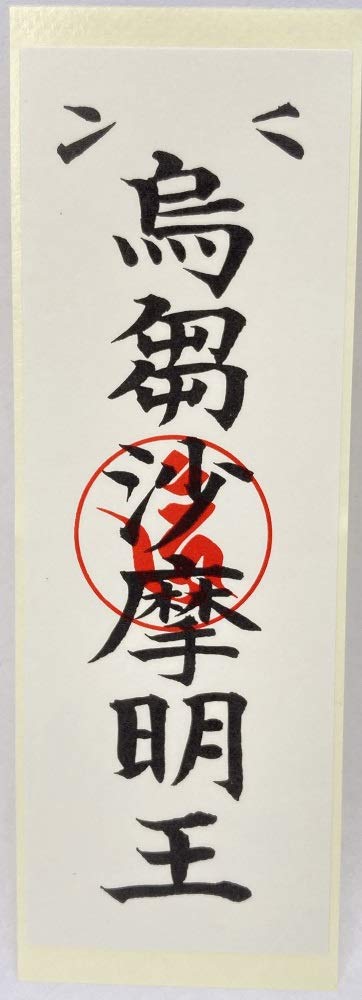 烏芻沙摩明王